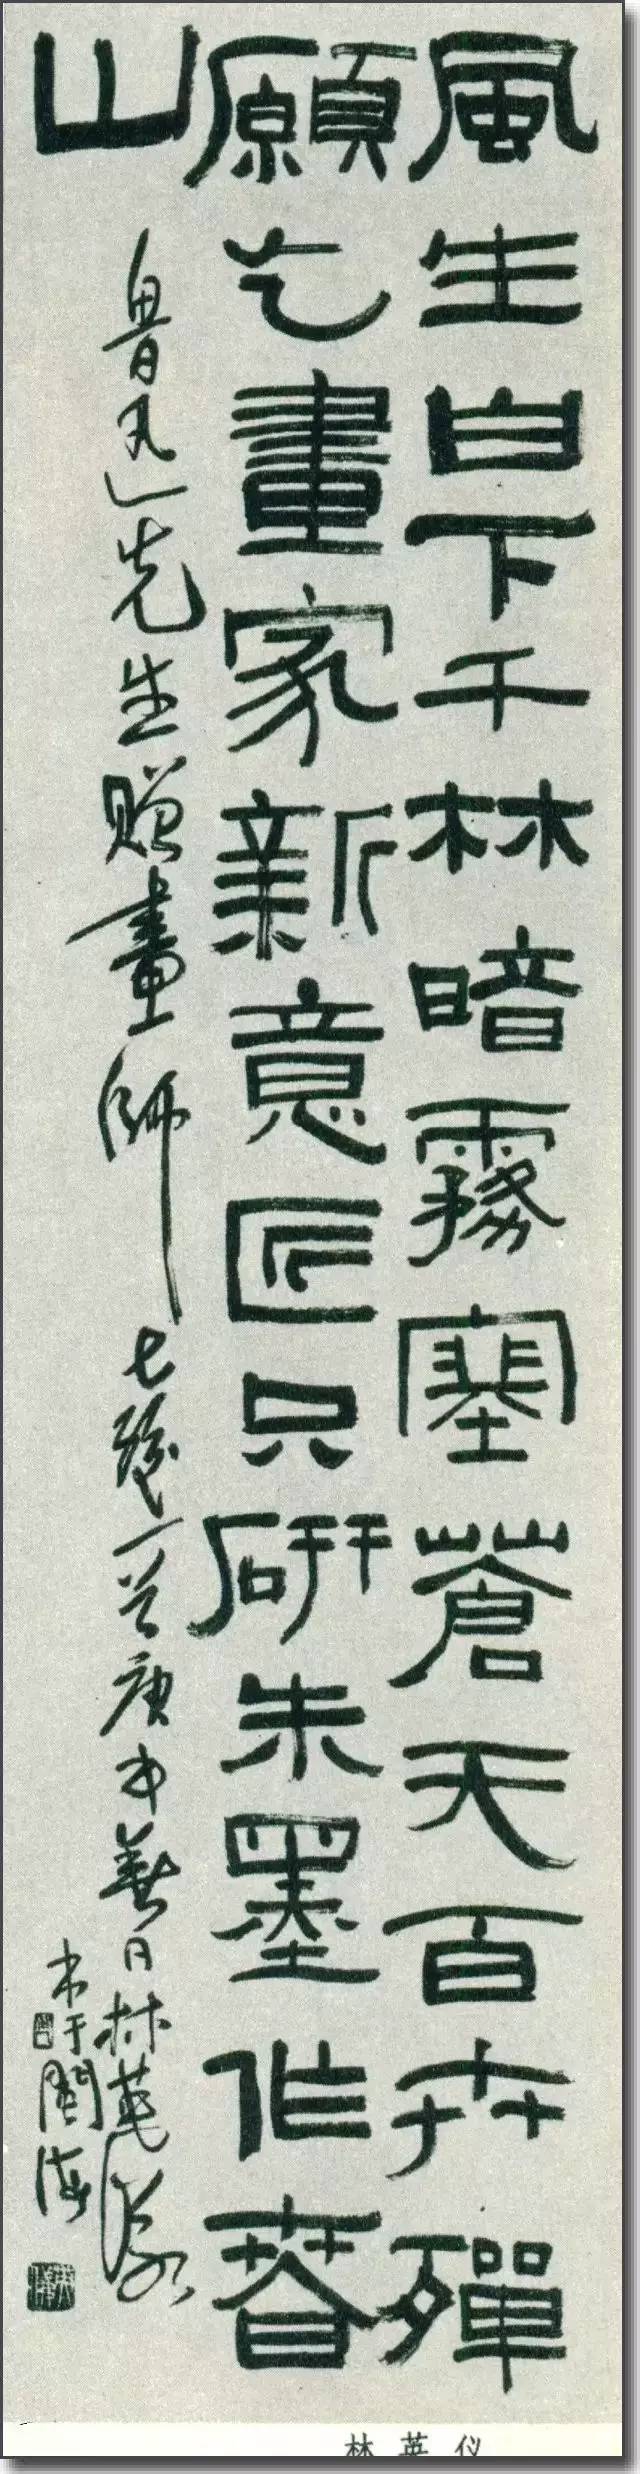 風生白下千林暗霧塞蒼天百卉殫
願乞畫家新意匠只研朱墨作春
山
魯迅先生贈畫師七絕一首庚申春日林英儀
书于閩海
林英仪